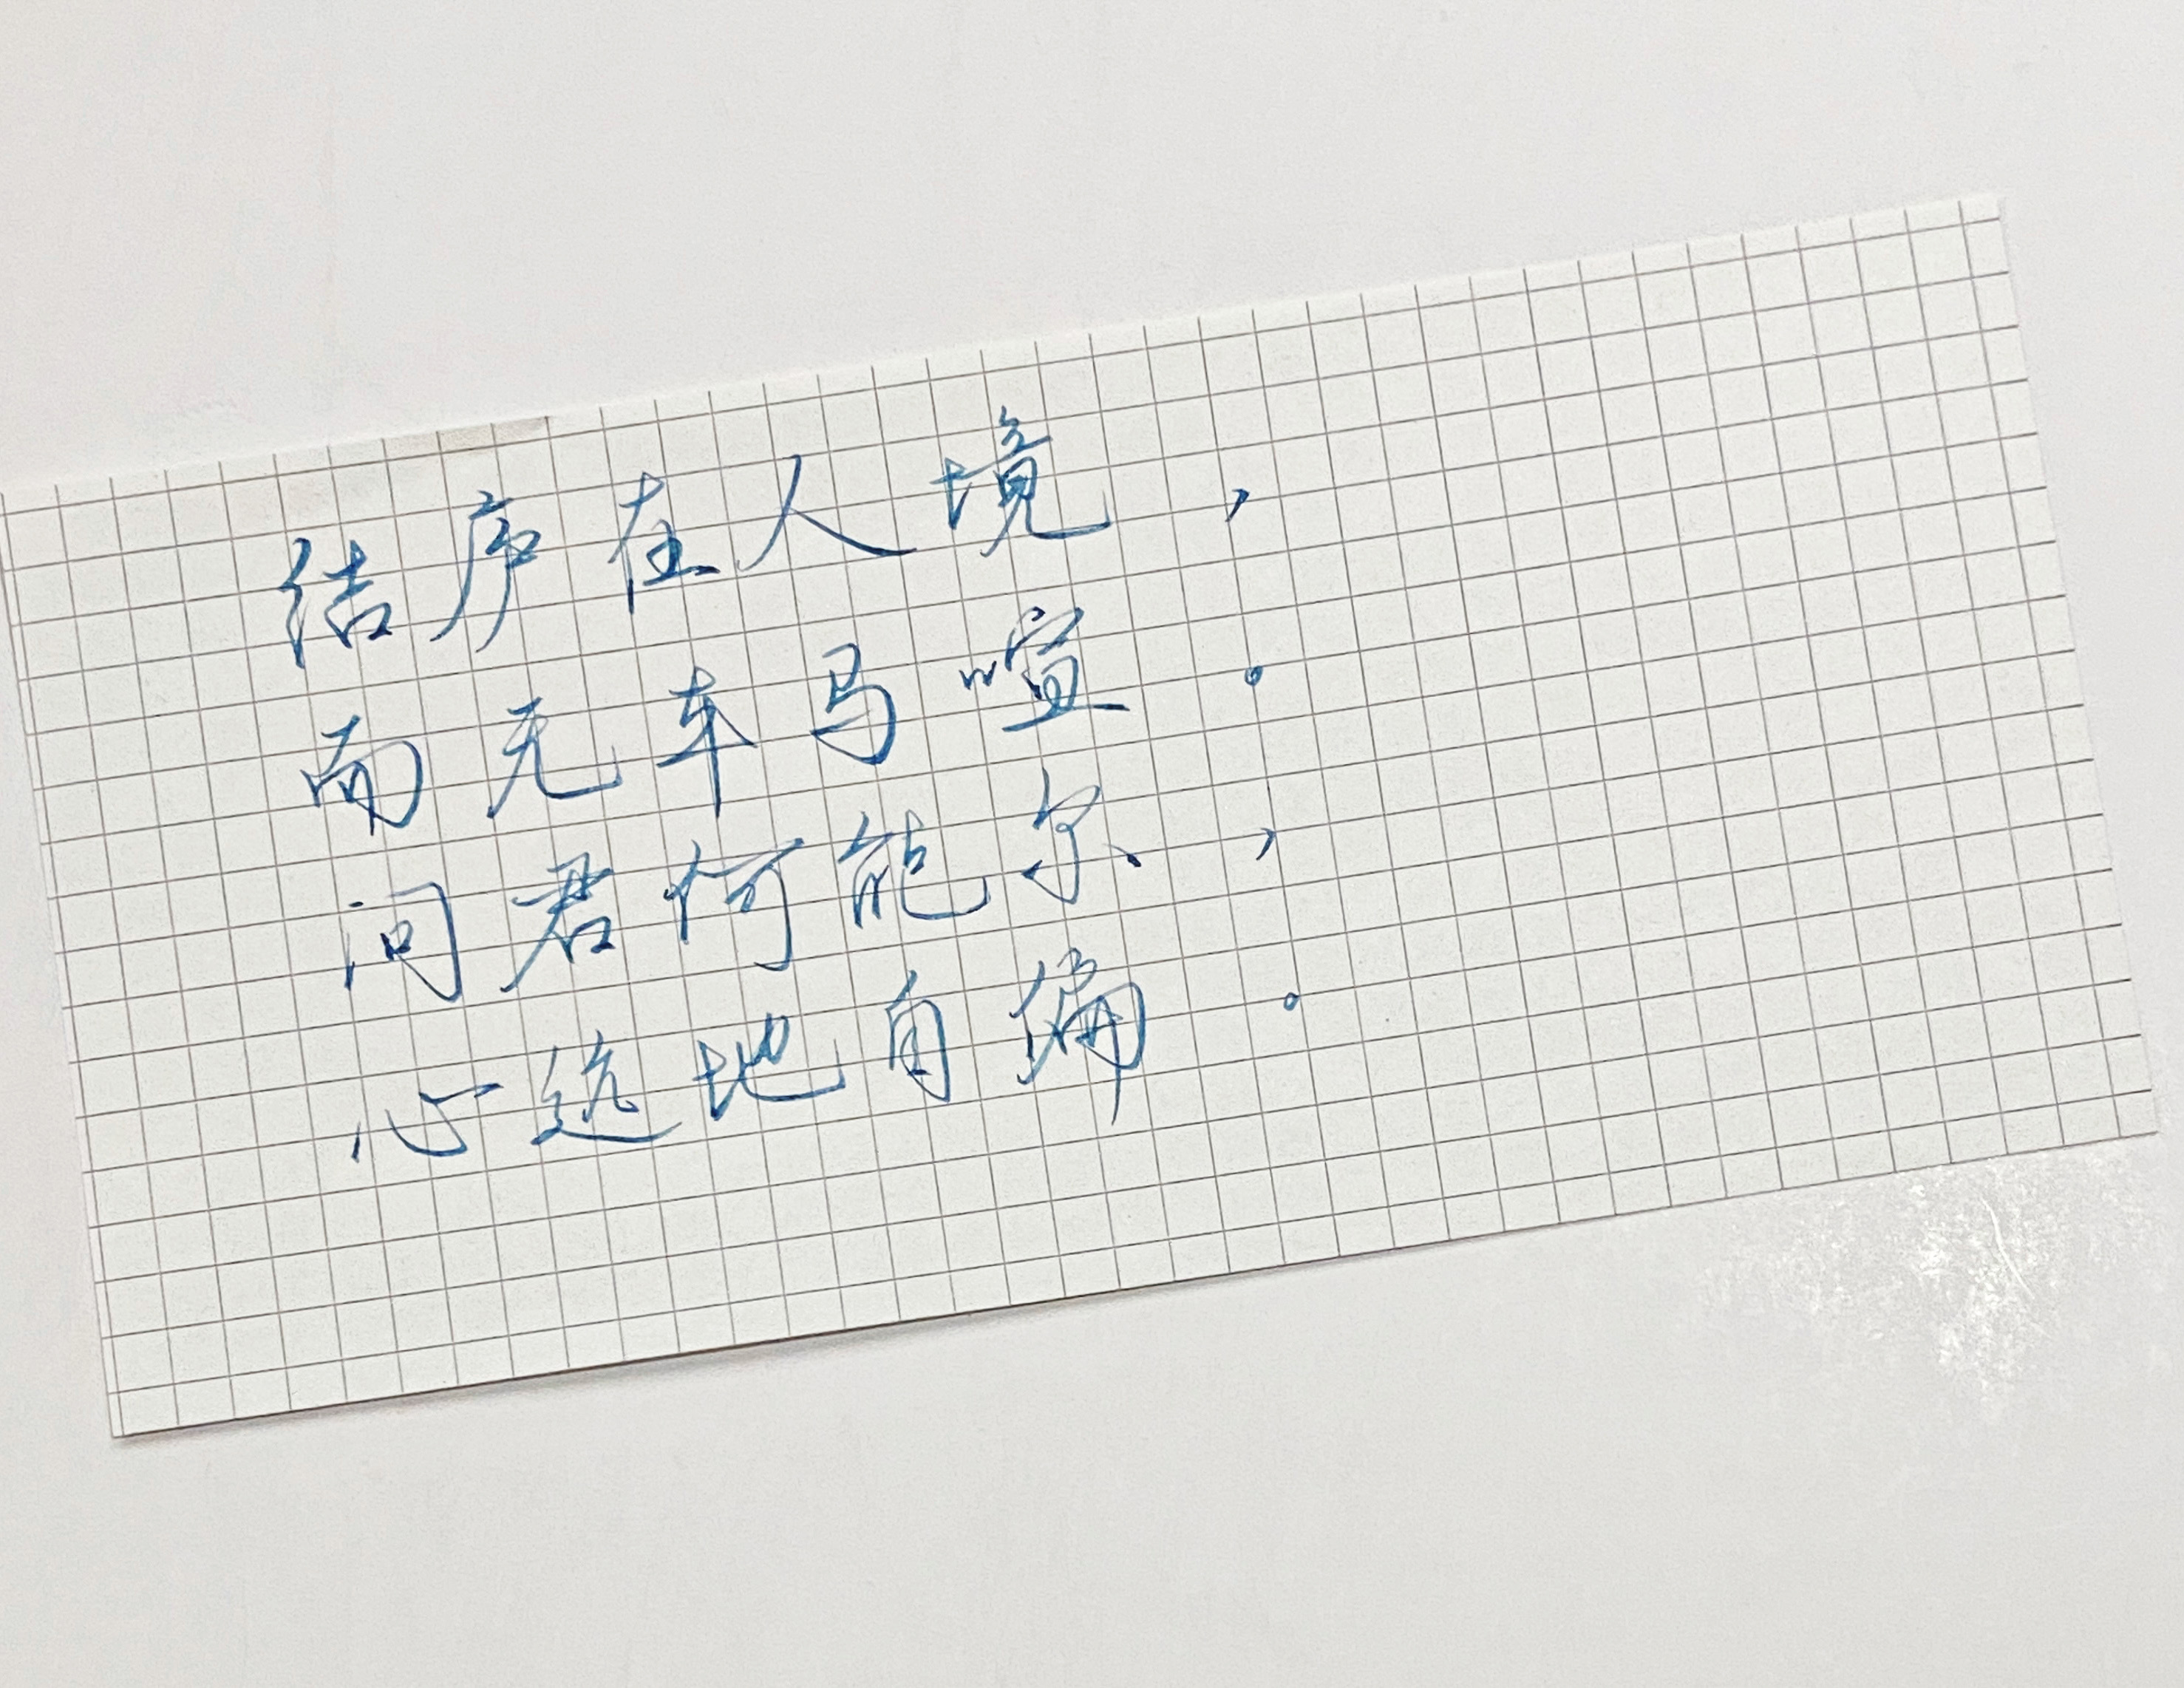 结庐在人境，
而无车马喧。
问君何能尔，
心远地自偏。